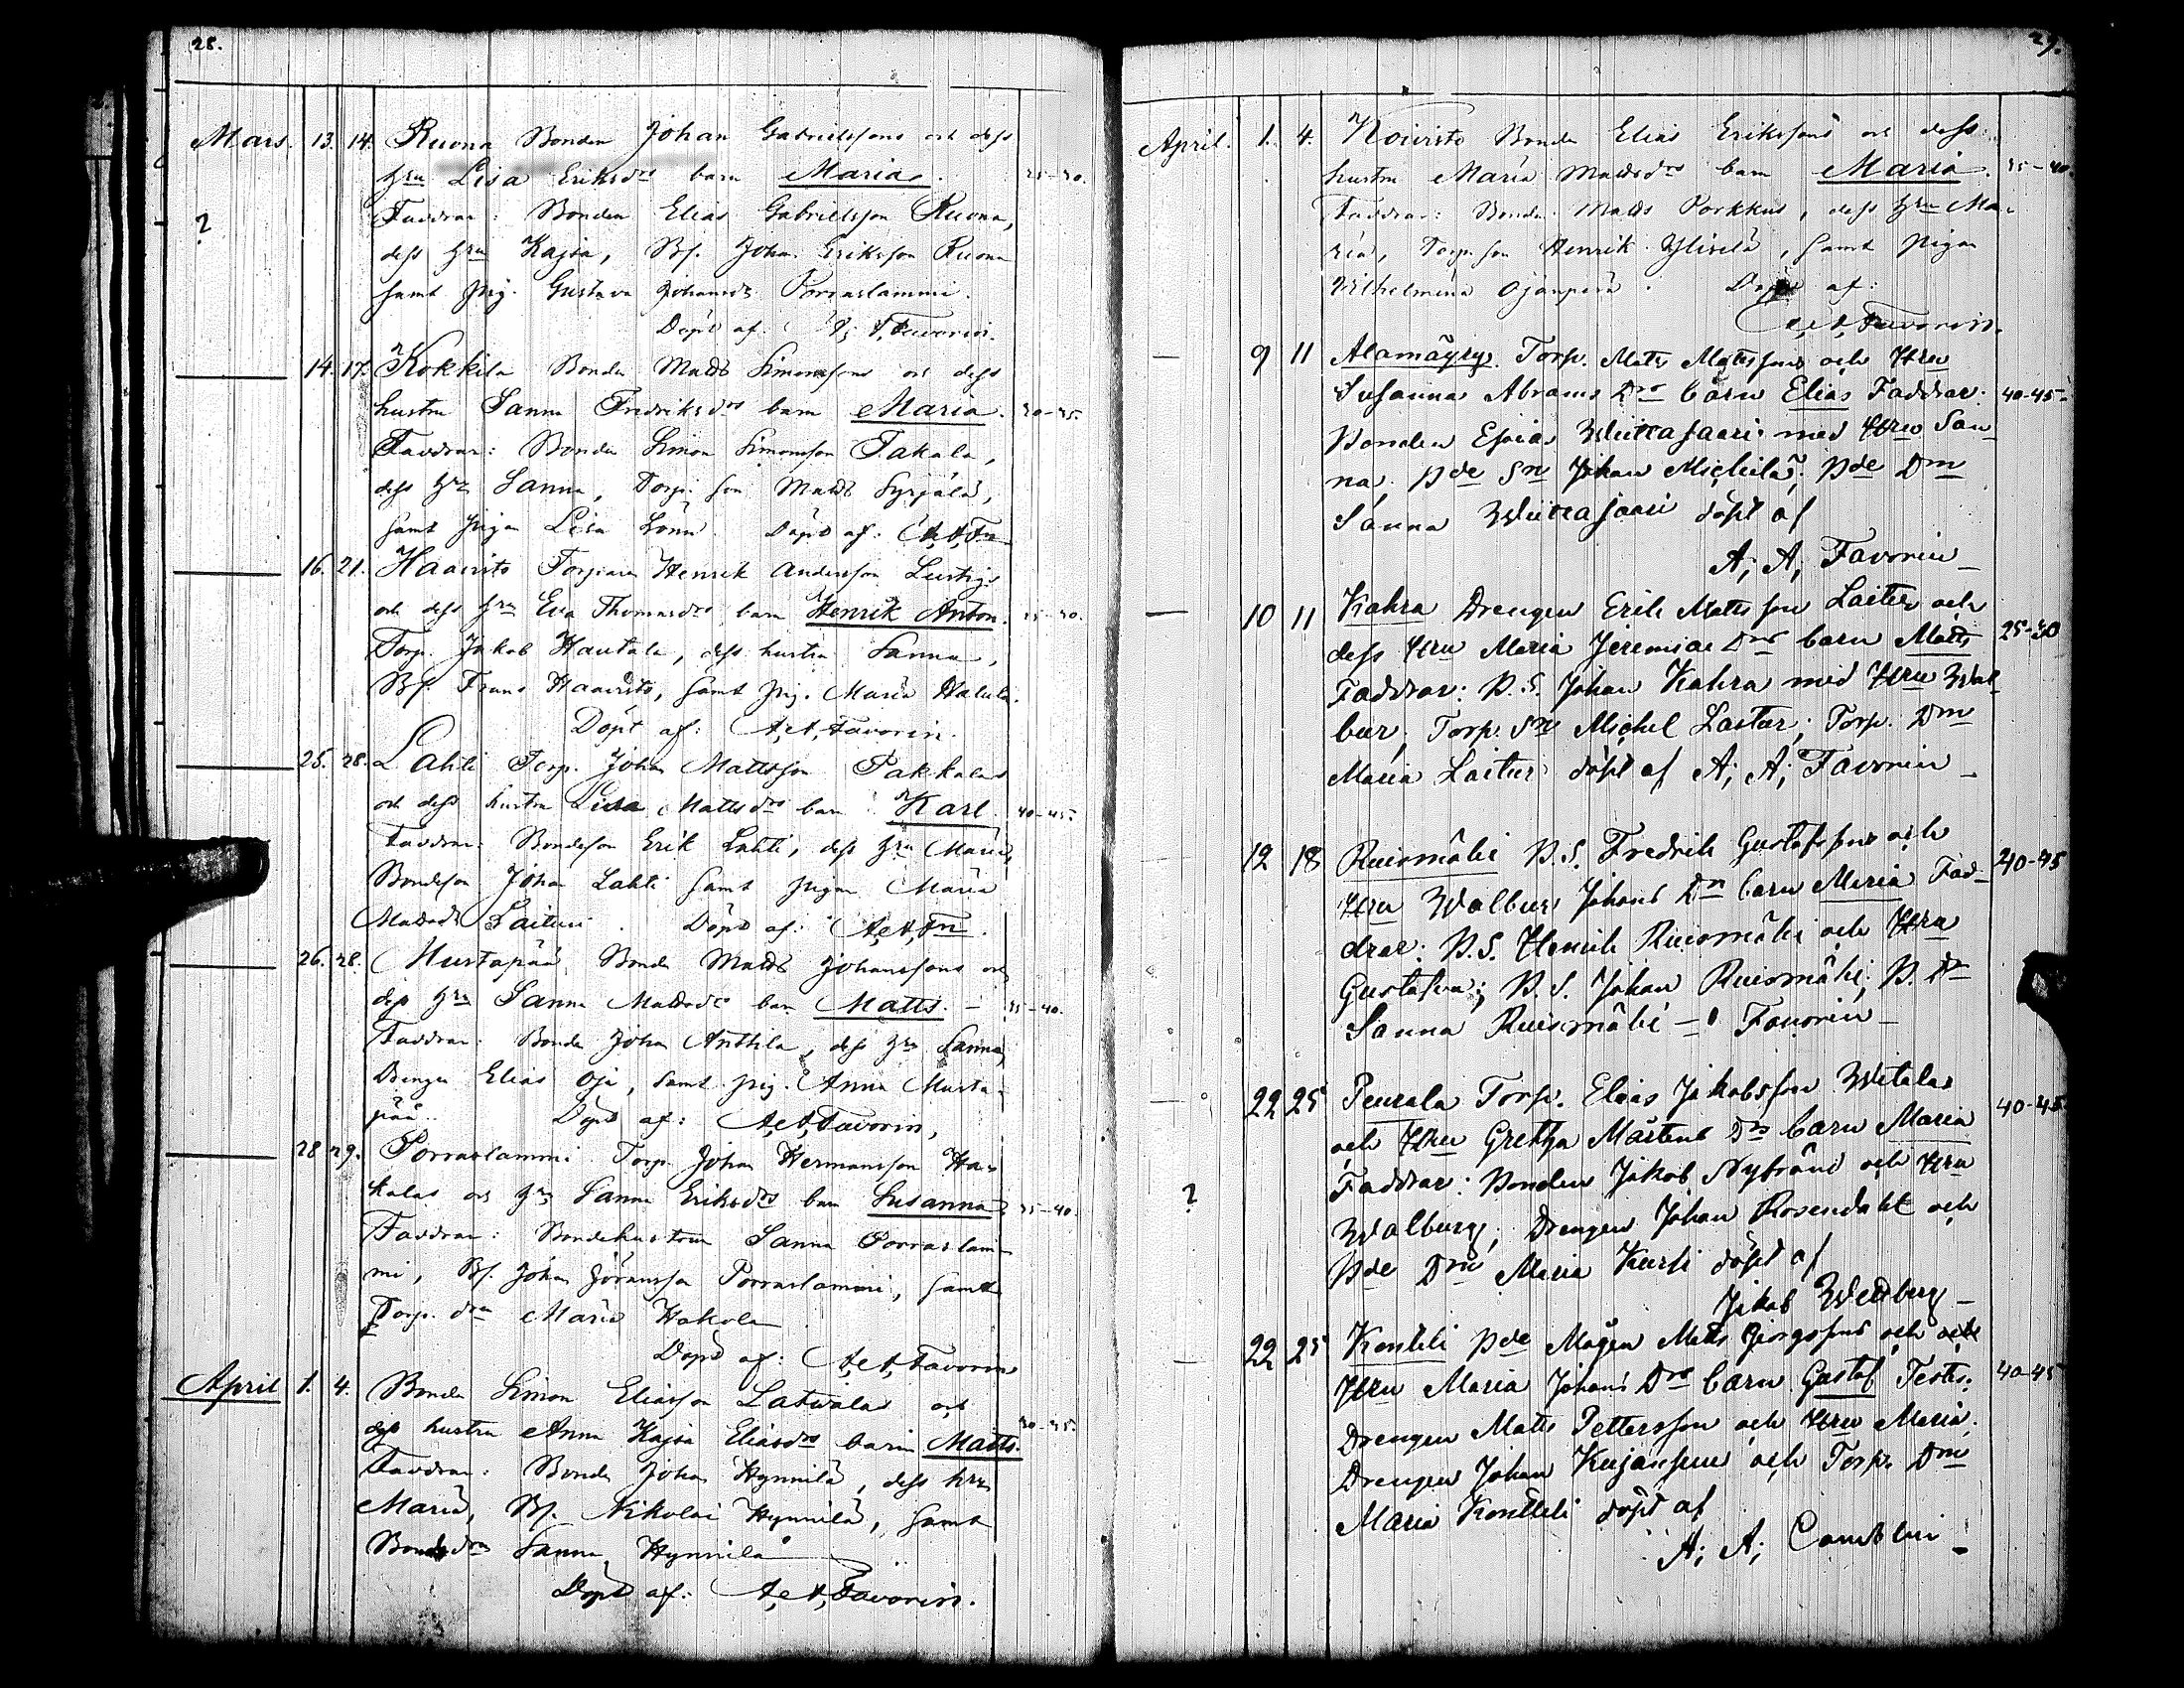 28.
Mars. 13. 14. Ruona Bonden Johan Gabrielssons och dess
hru Lisa Eriksdrs barn Maria. 25-30.
? Faddrar: Bonden Elias Gabrielsson Ruona,
dess hru Kajsa, Bs. Johan Eriksson Ruona
samt pig. Gustava Johansdr Porraslammi.
Döpt af: A, A, Favorin.
14. 17. Kokkila Bonden Matts Simonssons och dess
hustru Sanna Fredriksdrs barn Maria. 30-35.
Faddrar: Bonden Simon Simonsson Takala,
dess hru Sanna, Torp. son Matts Syrjälä,
samt pigan Lisa Lönn. Döpt af: A, A, Fn
16. 21. Haavisto Torparen Henrik Andersson Lustigs
och dess hru Eva Thomasdrs barn Henrik Anton. 25-30.
Torp. Jakob Hautala, dess hustru Sanna,
Bs. Frans Haavisto, samt pig. Maria Hakola.
Döpt af: A, A, Favorin.
25. 28. Lahti Torp. Johan Mattsson Pakkalas
och dess hustru Lisa Mattsdrs barn Karl. 40-45.
Faddrar: Bondeson Erik Lahti, dess hru Maria,
Bondeson Johan Lahti samt pigan Maria
Mattsdr Laituri. Döpt af: A, A, Fn.
26. 28. Mustapää Bonden Matts Johanssons och
dess hru Sanna Mattsdrs barn Matts. - 35-40.
Faddrar: Bonden Johan Anttila, dess hru Sanna,
Drengen Elias Oja, samt pig. Anna Musta-
pää. Döpt af: A, A, Favorin,
28 29. Porraslammi Torp. Johan Hermansson Ha-
kolas och hru Sanna Eriksdrs barn Susanna 35-40.
Faddrar: Bondehustrun Sanna Porraslam-
mi, Bs. Johan Göransson Porraslammi, samt
Torp. drn Maria Hakola
Döpt af: A, A, Favorin
April 1. 4. Bonden Simon Eliasson Latvalas och
dess hustru Anna Kajsa Eliasdrs barn Matts. 30-35.
Faddrar: Bonden Johan Hynnilä, dess hru
Maria, Bs. Nikolai Hynnilä, samt
Bondedrn Sanna Hynnilä
Döpt af: A, A, Favorin.
29.
April. 1. 4. Koivisto Bonden Elias Erikssons och dess
hustru Maria Mattsdrs barn Maria. 35-40.
Faddrar: Bonden Matts Porkkus, dess hru Ma-
ria, Torp. son Henrik Ylisela, samt pigan
Vilhelmina Ojanperä. Döpt af:
A, A, Favorin.
— 9 11 Alamäyry. Torp. Matts Mattssons och Hru
Susanna Abrams Drs barn Elias Faddrar: 40-45
Bonden Esias Wiitasaari med Hru San-
na, Bde Sn Johan Michilä, Bde Drn
Sanna Wiitasaari döpt af
A; A; Favorin –
— 10 11 Kahra Drengen Erik Mattsson Laituri och
dess Hru Maria Jeremiae Drs barn Matts 25-30
Faddrar: B.S. Johan Kahra med Hru Wal-
bur, Torp. Sn Michel Laitur, Torp. Drn
Maria Laituri döpt af A; A; Favorin –
12 18 Ruismäki B.S. Fredrik Gustafssons och
Hru Walbur Johans Drs barn Maria Fad- 40-45
drar: B.S. Henrik Ruismäki och Hru
Gustafva; B.S. Johan Ruismäki, B. Dr
Sanna Ruismäki – Favorin –
22 25 Peurala Torp. Elias Jakobsson Witalas
och Hru Gretha Mårtens Drs barn Maria 40-45
? Faddrar: Bonden Jakob Nybränd och Hru
Walburg, Drengen Johan Rosendahl och
Bde Drn Maria Kurki döpt af
Jakob Wedberg –
— 22 25 Kontteli Bde Mågen Matts Georgssons och
Hru Maria Johans Drs barn Gustaf Test: 40-45
Drengen Matts Pettersson och Hru Maria,
Drengen Johan Kujanpuu och Torp. Drn
Maria Kontteli döpt af
A; A;